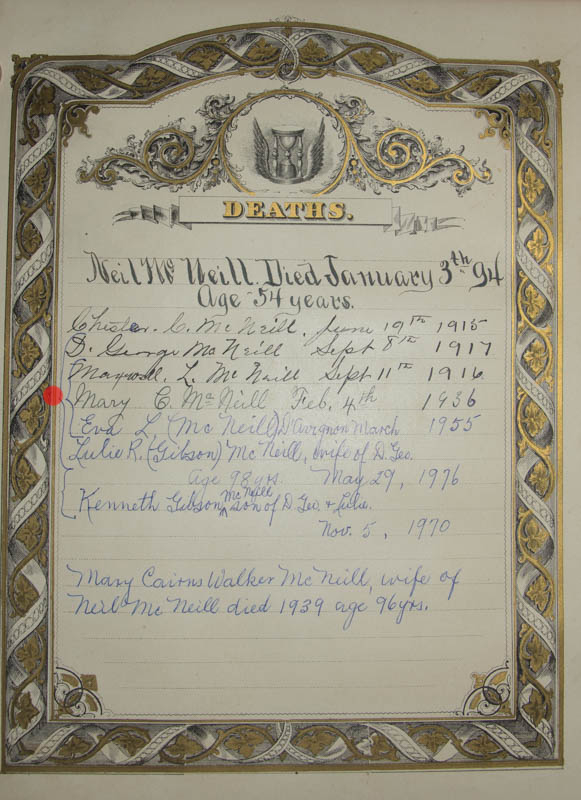 DEATHS.
Neil Mc Neill Died January 3th 94
Age 54 years.
Chester. C. Mc Neill, June 19th 1915
D. George Mc Neill Sept 8th 1917
Maxwell. L. Mc Neill Sept 11th 1916
Mary C. Mc Neill Feb. 4th 1936
Eva L. (Mc Neill) D'Avignon March 1955
Lulie R. (Gibson) McNeill, wife of D. Geo.
Age 98 yrs. May 29, 1976
Kenneth Gibson McNeill son of D. Geo. & Lulie.
Nov. 5, 1970
Mary Cairns Walker McNeill, wife of
Neil McNeill died 1939 age 96 yrs.